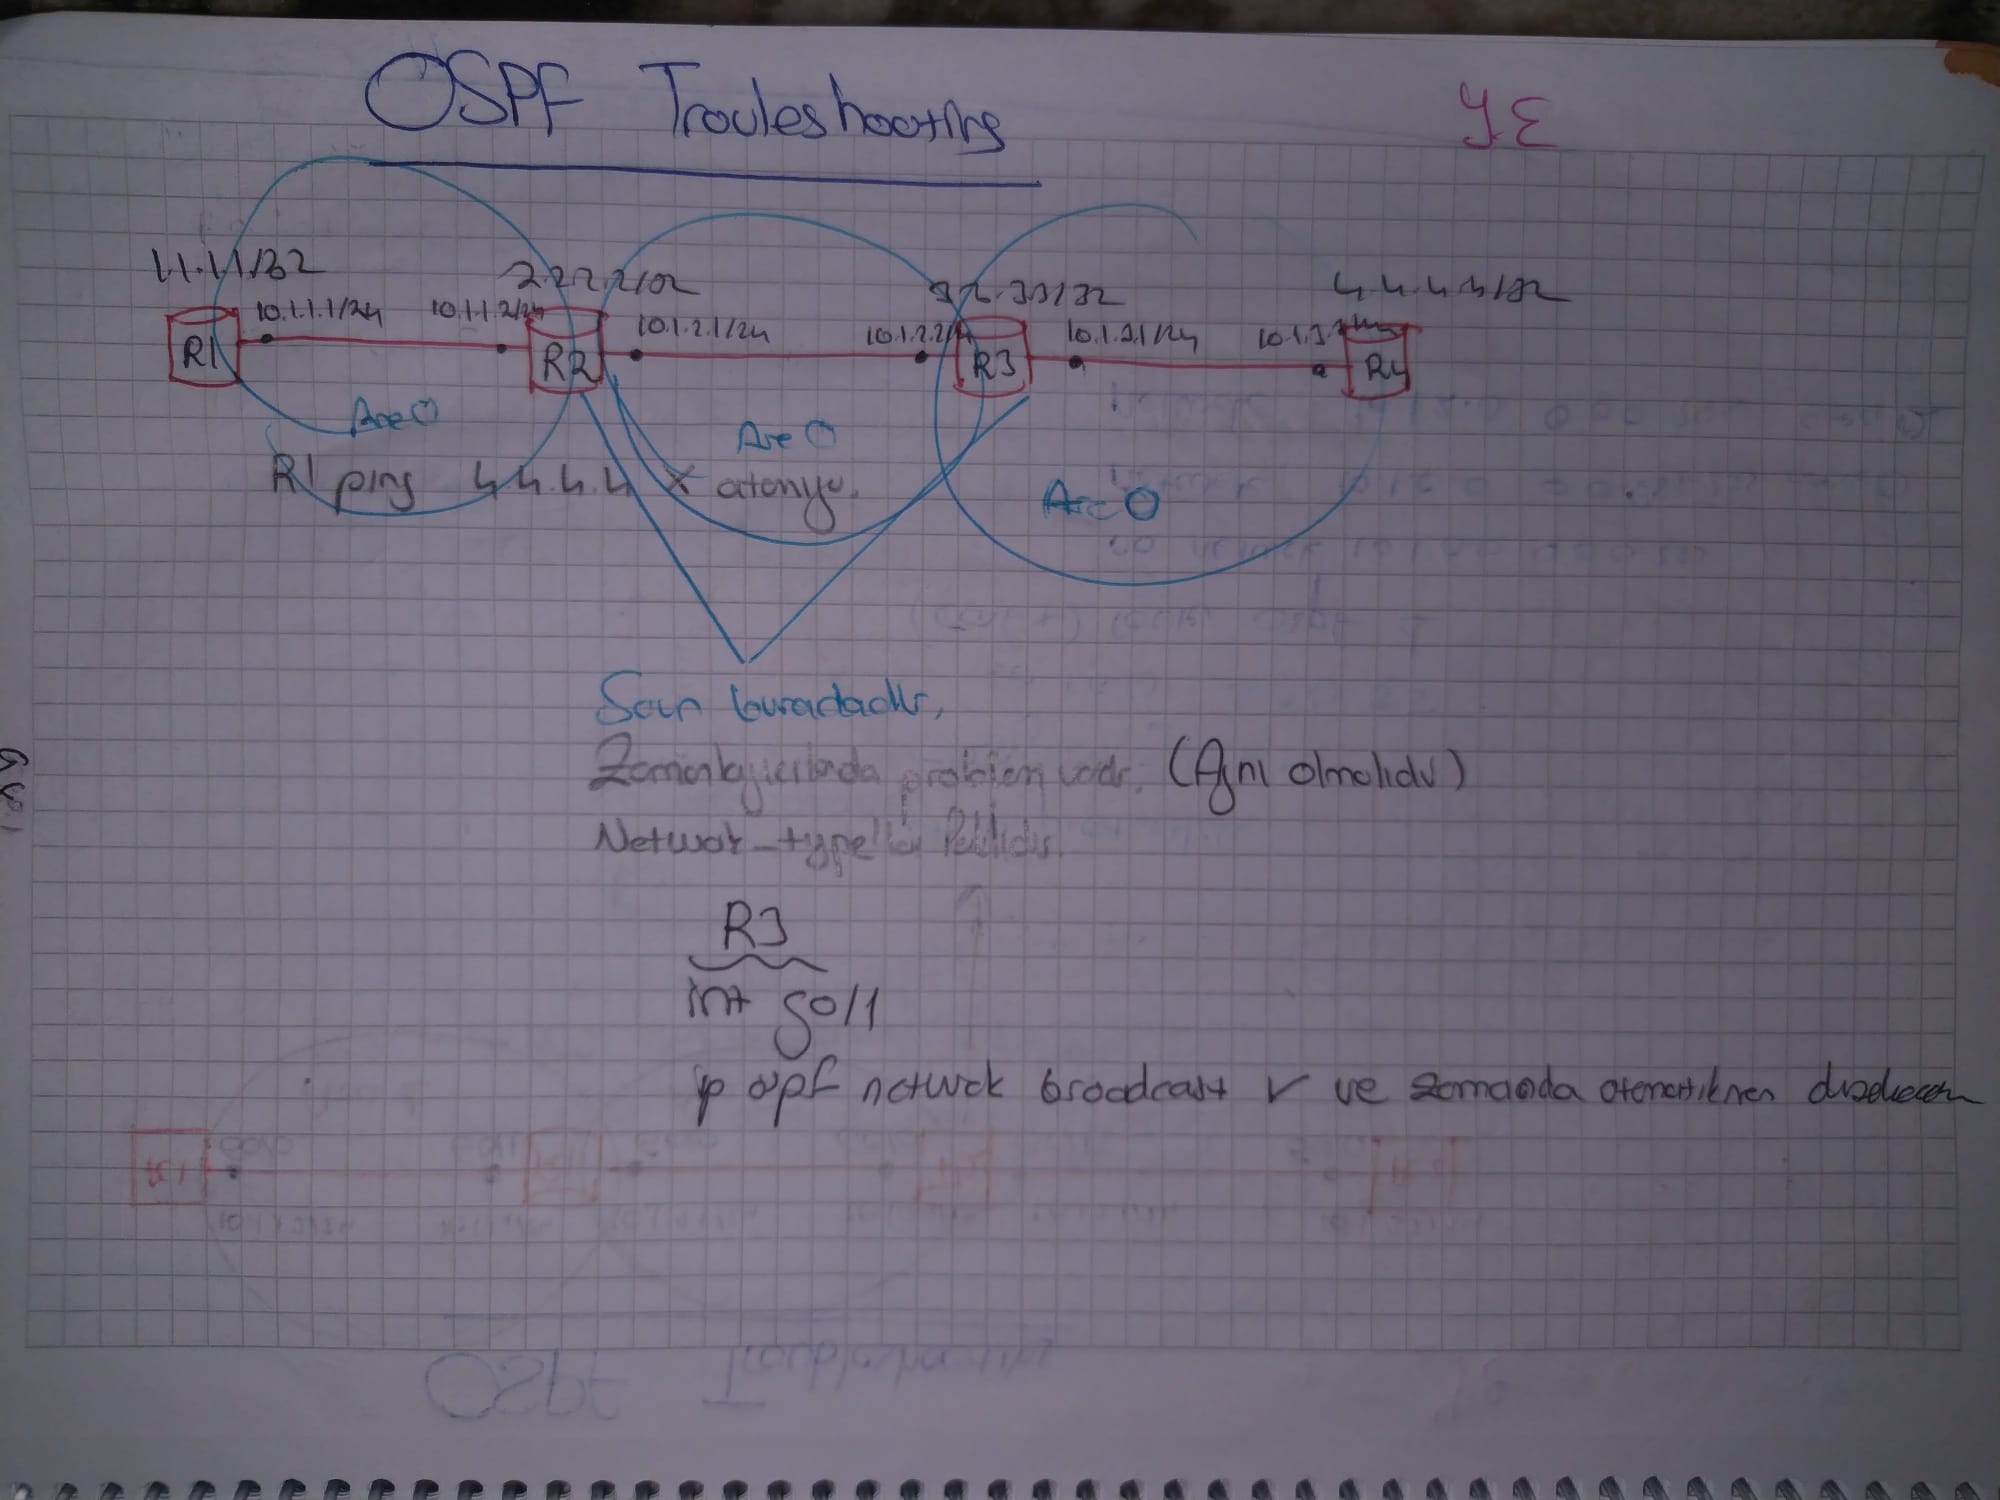 OSPF Trouleshooting
Y.E
1.1.1.1/32
2.2.2.2/32
4.4.4.4/32
10.1.1.1/24 10.1.1.2/24 10.1.2.1/24 10.1.2.2/24 10.1.3.1/24 10.1.3.
R1 R2 R3 R4
Are 0 Are 0
R1 ping 4.4.4.4 X atamıyo.
Are 0
Sorun buradadır,
Zamanlayıcılarda problem vardır. (Aynı olmalıdır)
R3
int g0/1
ip ospf network broadcast ✓ ve zamanda otomatikmen düzelecek